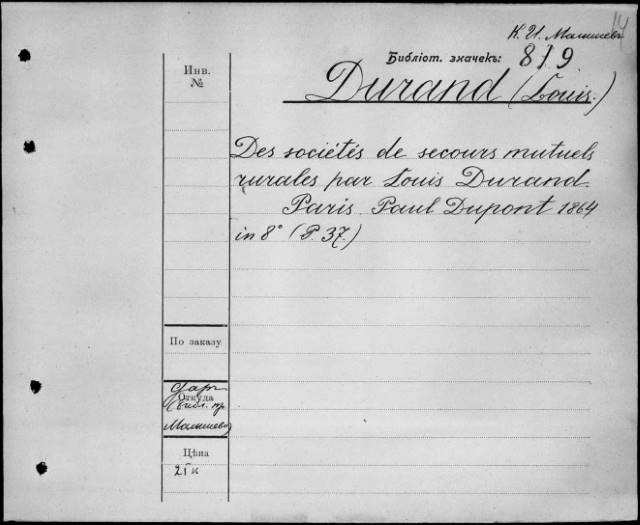 К. И. Малышев
14
Библіот. значекъ: 819
Инв.
№
Durand (Louis.)
Des sociétés de secours mutuels
rurales par Louis Durand.
Paris. Paul Dupont 1864
in 8° (P. 37.)
По заказу
Даръ
Откуда
библ. пр.
Малышева
Цѣна
25 к